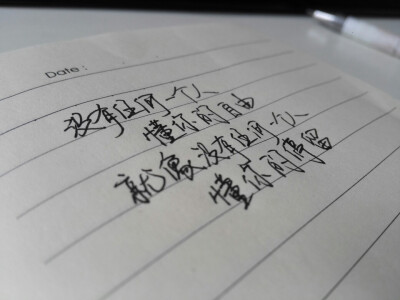 Date:
没有任何一个人
懂你的自由
就像没有任何一个人
懂你的停留